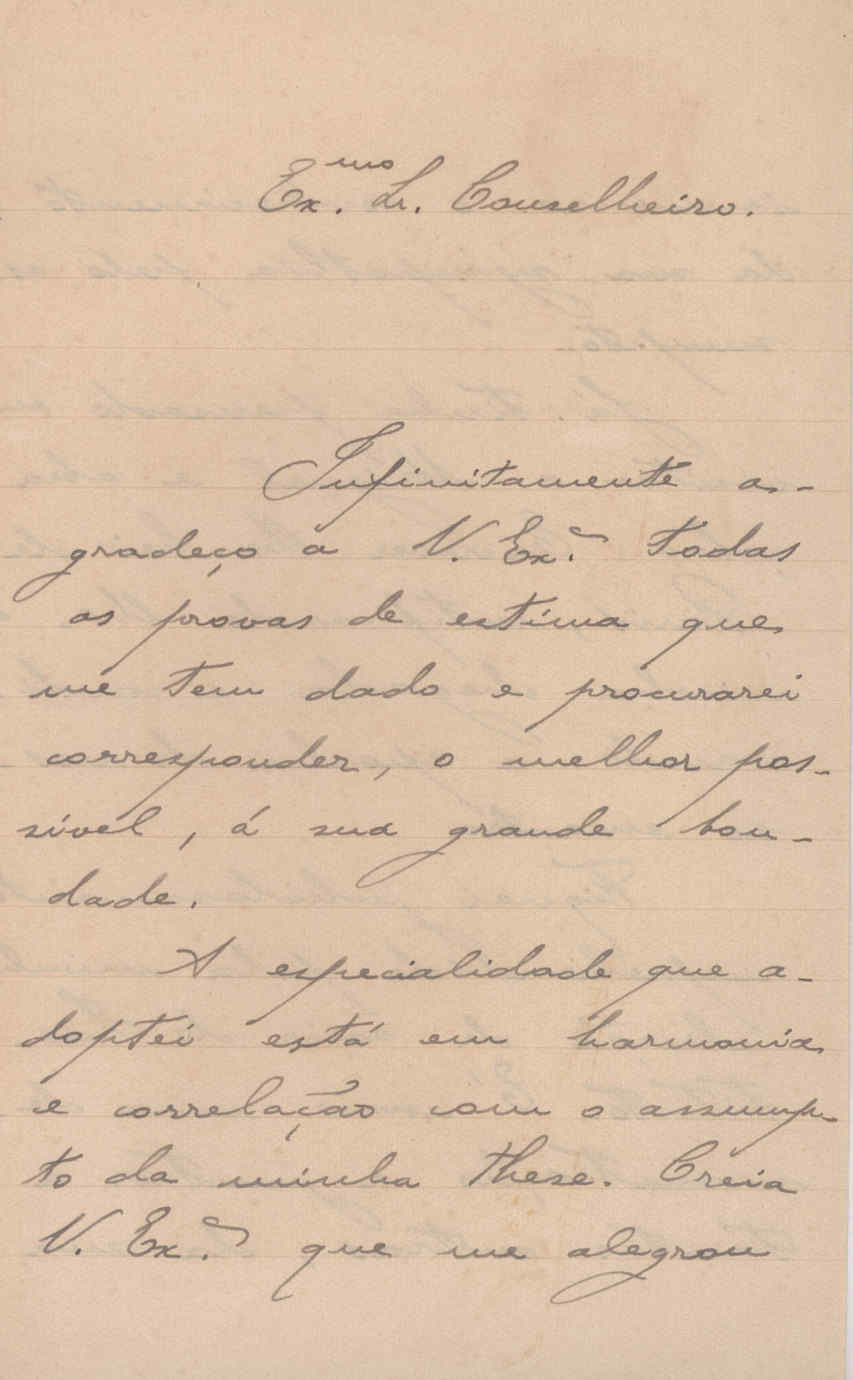 Ex.mo Sr. Conselheiro.
Infinitamente a-
gradeço a V. Ex.a todas
as provas de estima que
me tem dado e procurarei
corresponder, o melhor pos-
sível, á sua grande bon-
dade.
A especialidade que a-
doptei está em harmonia
e correlação com o assump-
to da minha these. Creia
V. Ex.a que me alegrou